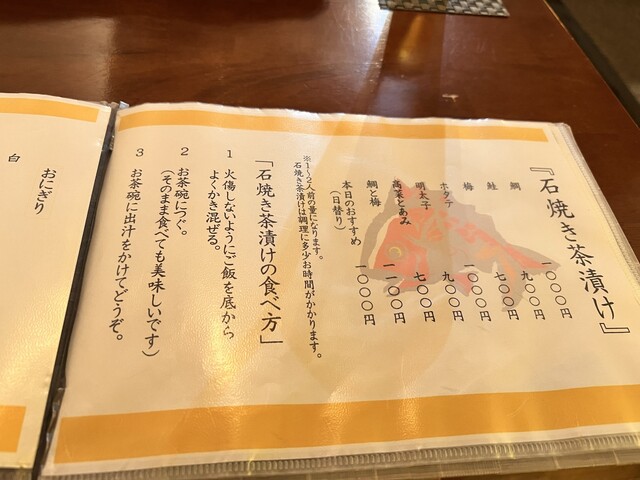 『石焼き茶漬け』
鯛 一〇〇〇円
鮭 九〇〇円
梅 七〇〇円
ホタテ 一〇〇〇円
明太子 九〇〇円
高菜とあみ 七〇〇円
鯛と梅 一〇〇〇円
本日のおすすめ 一〇〇〇円
（日替り）
※1～2人前の量になります。
石焼き茶漬けは調理に多少お時間がかかります。
「石焼き茶漬けの食べ方」
1 火傷しないようにご飯を底から
よくかき混ぜる。
2 お茶碗につぐ。
（そのまま食べても美味しいです）
3 お茶碗に出汁をかけてどうぞ。
おにぎり
白